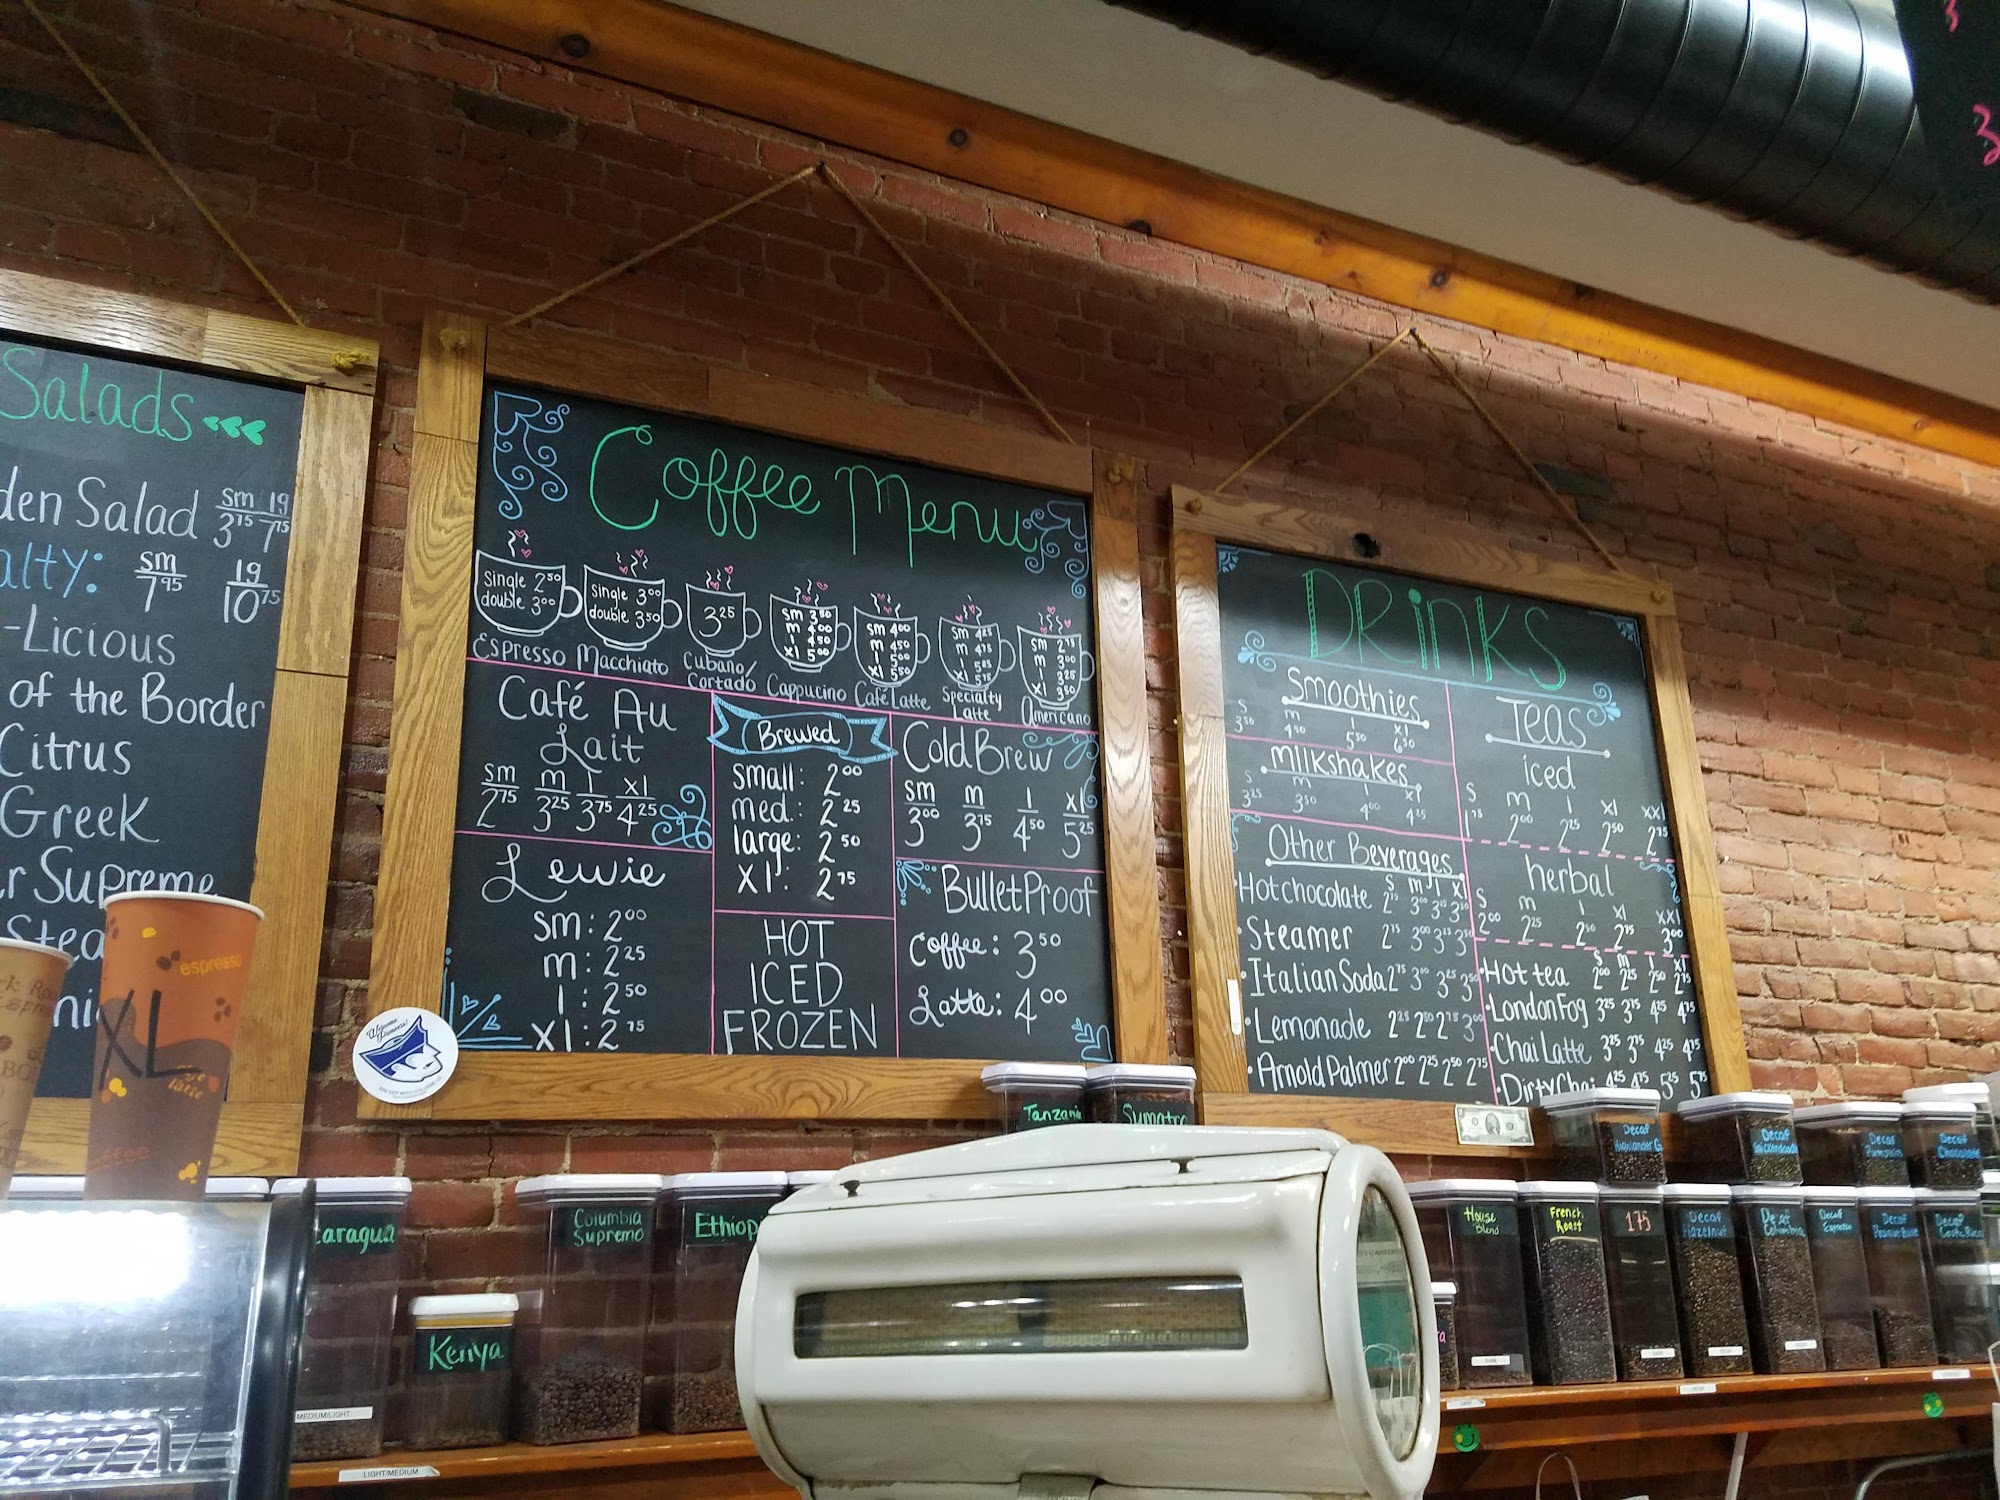 Salads
den Salad sm 3 75 lg 7 75
alty: sm 7 95 lg 10 75
-Licious
of the Border
Citrus
Greek
r Supreme
Stea
ni
espresso
XL
latte
Coffee Menu
single 2 50
double 3 00
Espresso
single 3 00
double 3 50
Macchiato
3 25
Cubano/
Cortado
sm 3 50
m 4 00
l 4 50
xl 5 00
Cappucino
sm 4 00
m 4 50
l 5 00
xl 5 50
Café Latte
sm 4 25
m 4 75
l 5 25
xl 5 75
Specialty
Latte
sm 2 75
m 3 00
l 3 25
xl 3 50
Americano
Café Au
Lait
sm m l xl
2 75 3 25 3 75 4 25
Lewie
sm: 2 00
m: 2 25
l: 2 50
xl: 2 75
Brewed
small: 2 00
med.: 2 25
large: 2 50
xl: 2 75
HOT
ICED
FROZEN
Cold Brew
sm m l xl
3 00 3 75 4 50 5 25
BulletProof
Coffee: 3 50
Latte: 4 00
DRINKS
Smoothies
s m l xl
3 50 4 50 5 50 6 50
Milkshakes
s m l xl
3 25 3 50 4 00 4 25
Other Beverages
s m l xl
Hot chocolate 2 75 3 00 3 25 3 50
• Steamer 2 75 3 00 3 25 3 50
• Italian Soda 2 75 3 00 3 25 3 50
• Lemonade 2 25 2 50 2 75 3 00
• Arnold Palmer 2 00 2 25 2 50 2 75
Teas
iced
s m l xl xxl
1 75 2 00 2 25 2 50 2 75
herbal
s m l xl xxl
2 00 2 25 2 50 2 75 3 00
s m l xl
• Hot tea 2 00 2 25 2 50 2 75
• London Fog 3 25 3 75 4 25 4 75
• Chai Latte 3 25 3 75 4 25 4 75
• Dirty Chai 4 25 4 75 5 25 5 75
Tanzania
Sumatra
Decaf
Highlander G
Decaf
Decaf
Pumpkin
Decaf
Chocolate
caragua
MEDIUM/LIGHT
Kenya
Columbia
Supremo
Ethiop
House
Blend
French
Roast
175
Decaf
Hazelnut
Decaf
Columbia
Decaf
Espresso
Decaf
Decaf
Costa Rica
LIGHT/MEDIUM